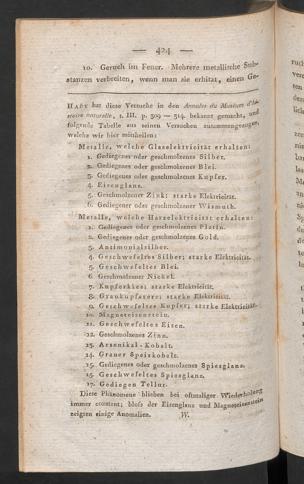 — 424 —
10. Geruch im Feuer. Mehrere metallische Sub-
stanzen verbreiten, wenn man sie erhitzt, einen Ge-
HAUY hat diese Versuche in den Annales du Museum d'hi-
stoire naturelle, t. III. p. 309 — 314. bekannt gemacht, und
folgende Tabelle aus seinen Versuchen zusammengezogen,
welche wir hier mittheilen:
Metalle, welche Glaselektricität erhalten:
1. Gediegenes oder geschmolzenes Silber.
2. Gediegenes oder geschmolzenes Blei.
3. Gediegenes oder geschmolzenes Kupfer.
4. Eisenglanz.
5. Geschmolzener Zink; starke Elektricität.
6. Gediegener oder geschmolzener Wismuth.
Metalle, welche Harzelektricität erhalten:
1. Gediegenes oder geschmolzenes Platin.
2. Gediegenes oder geschmolzenes Gold.
3. Antimonialsilber.
4. Geschwefeltes Silber; starke Elektricität.
5. Geschwefeltes Blei.
6. Geschmolzener Nickel.
7. Kupferkies; starke Elektricität.
8. Graukupfererz; starke Elektricität.
9. Geschwefeltes Kupfer; starke Elektricität.
10. Magneteisenstein.
11. Geschwefeltes Eisen.
12. Geschmolzenes Zinn.
13. Arsenikal-Kobalt.
14. Grauer Speiskobalt.
15. Gediegenes oder geschmolzenes Spiesglanz.
16. Geschwefeltes Spiesglanz.
17. Gediegen Tellur.
Diese Phänomene blieben bey oftmaliger Wiederholung
immer constant; blofs der Eisenglanz und Magneteisenstein
zeigten einige Anomalien. W.